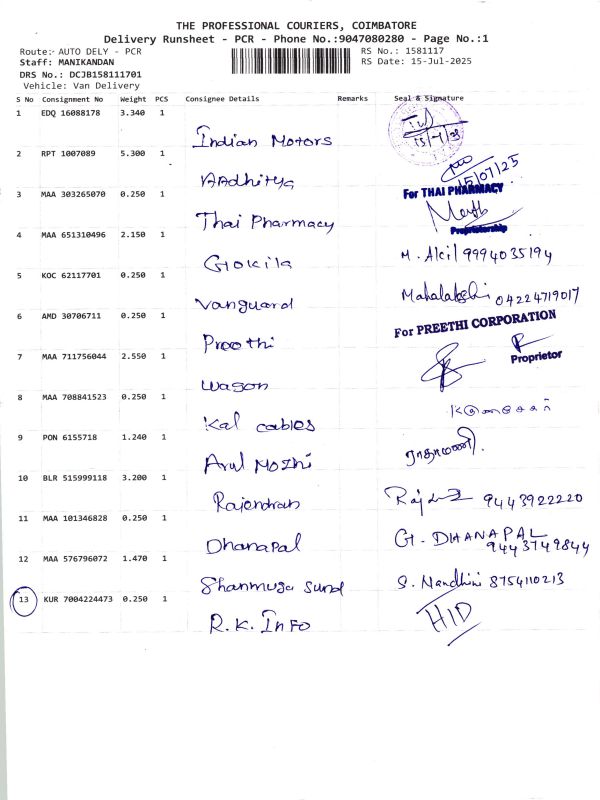 THE PROFESSIONAL COURIERS, COIMBATORE
Delivery Runsheet - PCR - Phone No.:9047080280 - Page No.:1
Route:- AUTO DELY - PCR RS No.: 1581117
Staff: MANIKANDAN RS Date: 15-Jul-2025
DRS No.: DCJB158111701
Vehicle: Van Delivery
S No Consignment No Weight PCS Consignee Details Remarks Seal & Signature
1 EDQ 16088178 3.340 1
Indian Motors 15/7/25
2 RPT 1007089 5.300 1
AAdhitya 15/07/25
3 MAA 303265070 0.250 1 For THAI PHARMACY
Thai Pharmacy Proprietorship
4 MAA 651310496 2.150 1
Gokila M. Akil 9994035194
5 KOC 62117701 0.250 1
Vanguard Mahalakshi 04224719017
6 AMD 30706711 0.250 1 For PREETHI CORPORATION
Preethi Proprietor
7 MAA 711756044 2.550 1
Wagon
8 MAA 708841523 0.250 1
Kal cables
9 PON 6155718 1.240 1
Arul Mozhi ராதாமணி.
10 BLR 515999118 3.200 1
Rajendran 9443922220
11 MAA 101346828 0.250 1
Dhanapal G. DHANAPAL
9443749844
12 MAA 576796072 1.470 1
Shanmuga Sund S. Nandhini 8754110213
13 KUR 7004224473 0.250 1
R.K. Info HID